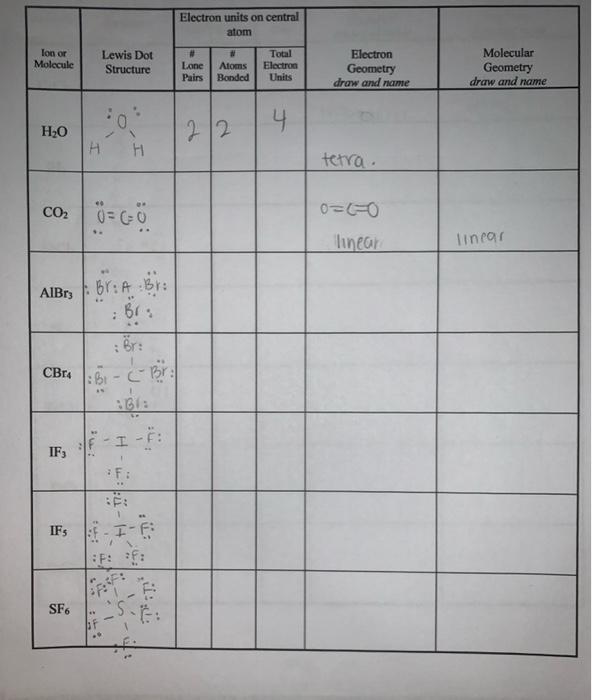 Electron units on central
atom
Ion or
Molecule
Lewis Dot
Structure
#
Lone
Pairs
#
Atoms
Bonded
Total
Electron
Units
Electron
Geometry
draw and name
Molecular
Geometry
draw and name
H₂O
O
H H
2 2 4
tetra.
CO₂
O=C=O
O=C=O
linear
linear
AlBr₃
:Br:A:Br:
:Br:
CBr₄
:Br:
:Br-C-Br:
:Br:
IF₃
:F-I-F:
:F:
IF₅
:F:
:F-I-F:
:F: :F:
SF₆
:F: F: F:
:F-S-F:
F: